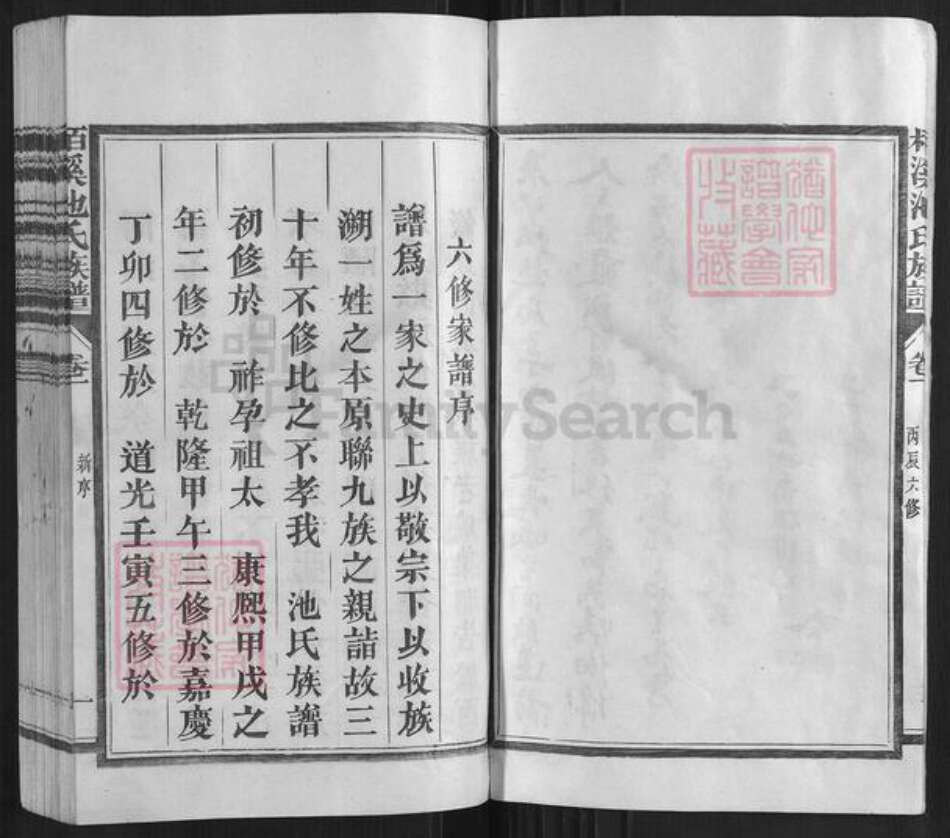 六修家譜序
譜爲一家之史上以敬宗下以收族
溯一姓之本原聯九族之親誼故三
十年不修比之不孝我 池氏族譜
初修於 祚孕祖太 康熙甲戌之
年二修於 乾隆甲午三修於嘉慶
丁卯四修於 道光壬寅五修於
栢溪池氏族譜 卷一 新序 一
溪池氏族譜 卷一 丙辰六修
FamilySearch